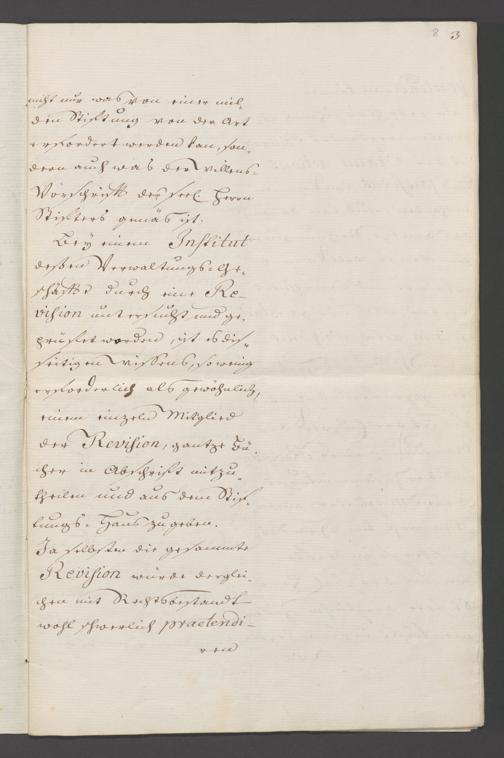 8 3
nicht nur was von einer mil-
den Stiftung von der Art
erfordert werden kan, son-
dern auch was der willens-
Vorschrifft des seel. Herrn
Stifters gemäs ist.
Bey einem Institut
deßen Verwaltungs-Ge-
schäffte durch eine Re-
vision untersucht und ge-
prüfet worden, ist es dis-
seitigen wissens, so wenig
erforderlich als gewöhnlich,
einem einzeln Mitglied
der Revision, gantze Bü-
cher in Abschrift mitzu-
theilen und aus dem Stif-
tungs-Haus zu geben.
Ja selbsten die gesammte
Revision würde derglei-
chen mit Rechtsbestandt
wohl schwerlich praetendi-
ren